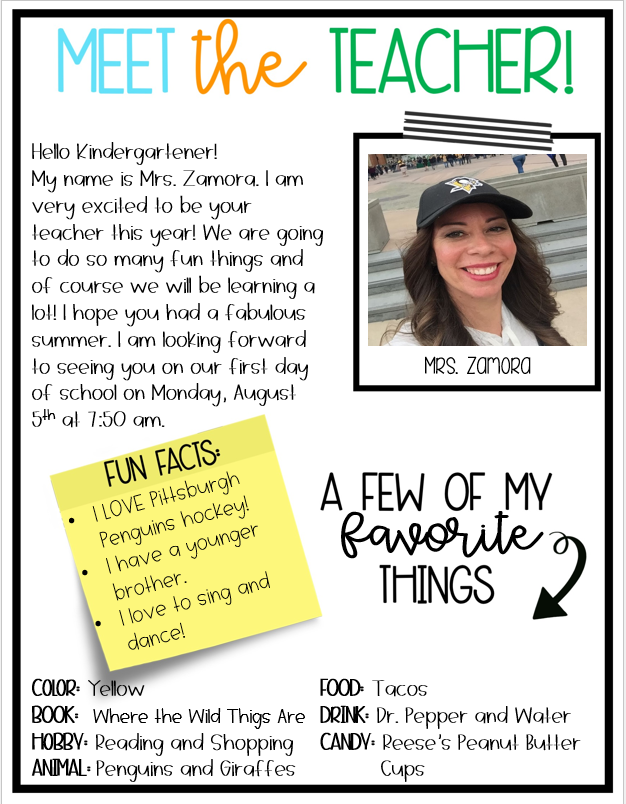 MEET the TEACHER!
Hello Kindergartener!
My name is Mrs. Zamora. I am
very excited to be your
teacher this year! We are going
to do so many fun things and
of course we will be learning a
lot! I hope you had a fabulous
summer. I am looking forward
to seeing you on our first day
of school on Monday, August
5th at 7:50 am.
MRS. Zamora
FUN FACTS:
• I LOVE Pittsburgh
Penguins hockey!
• I have a younger
brother.
• I love to sing and
dance!
A FEW OF MY
favorite
THINGS
COLOR: Yellow
BOOK: Where the Wild Thigs Are
HOBBY: Reading and Shopping
ANIMAL: Penguins and Giraffes
FOOD: Tacos
DRINK: Dr. Pepper and Water
CANDY: Reese's Peanut Butter
Cups